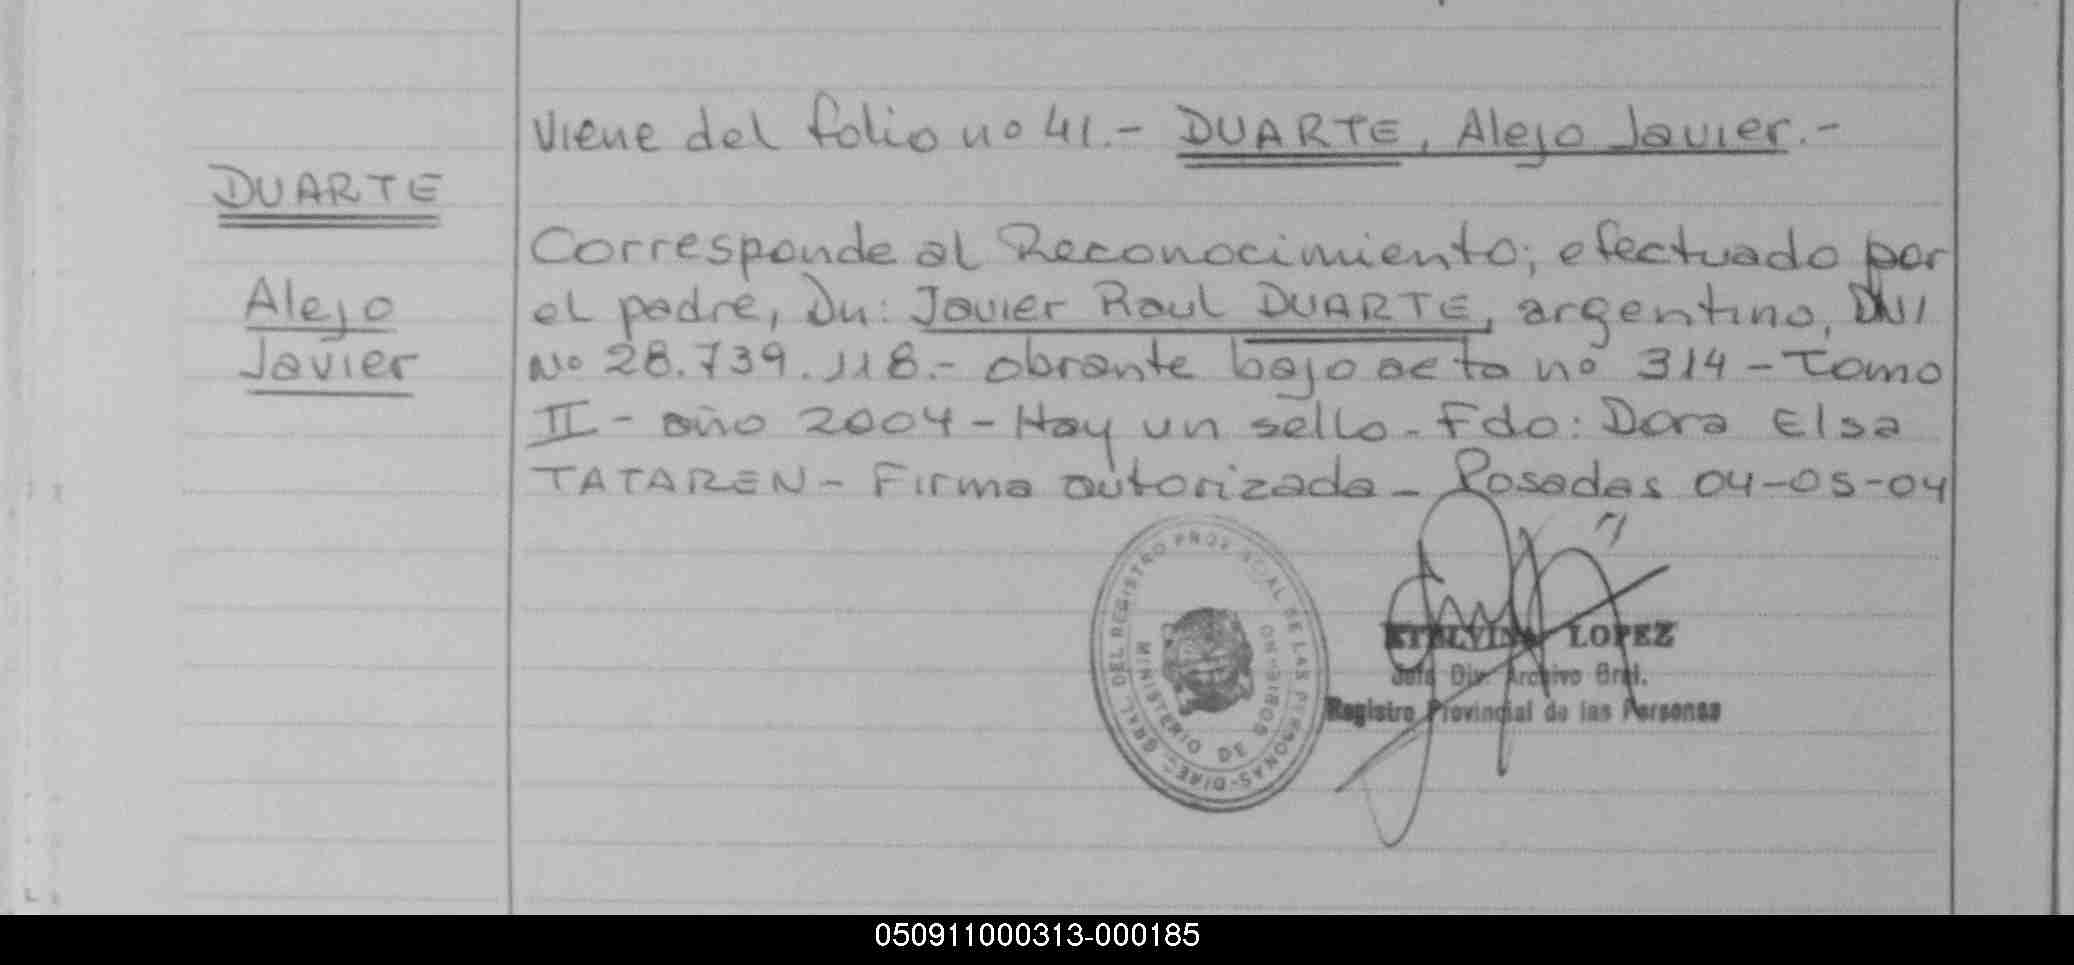 Viene del folio no 41.- DUARTE, Alejo Javier.-
DUARTE
Alejo
Javier
Corresponde al Reconocimiento; efectuado por
el padre, Dn: Javier Raul DUARTE, argentino, DNI
No 28.739.118.- obrante bajo acta no 314 - Tomo
II - año 2004 - Hay un sello - Fdo: Dora Elsa
TATAREN - Firma autorizada - Posadas 04-05-04
GRAL. DEL REGISTRO PROVINCIAL DE LAS PERSONAS-DIREC
MINISTERIO DE GOBIERNO
ETELVINA LOPEZ
Jefe Div. Archivo Gral.
Registro Provincial de las Personas
050911000313-000185